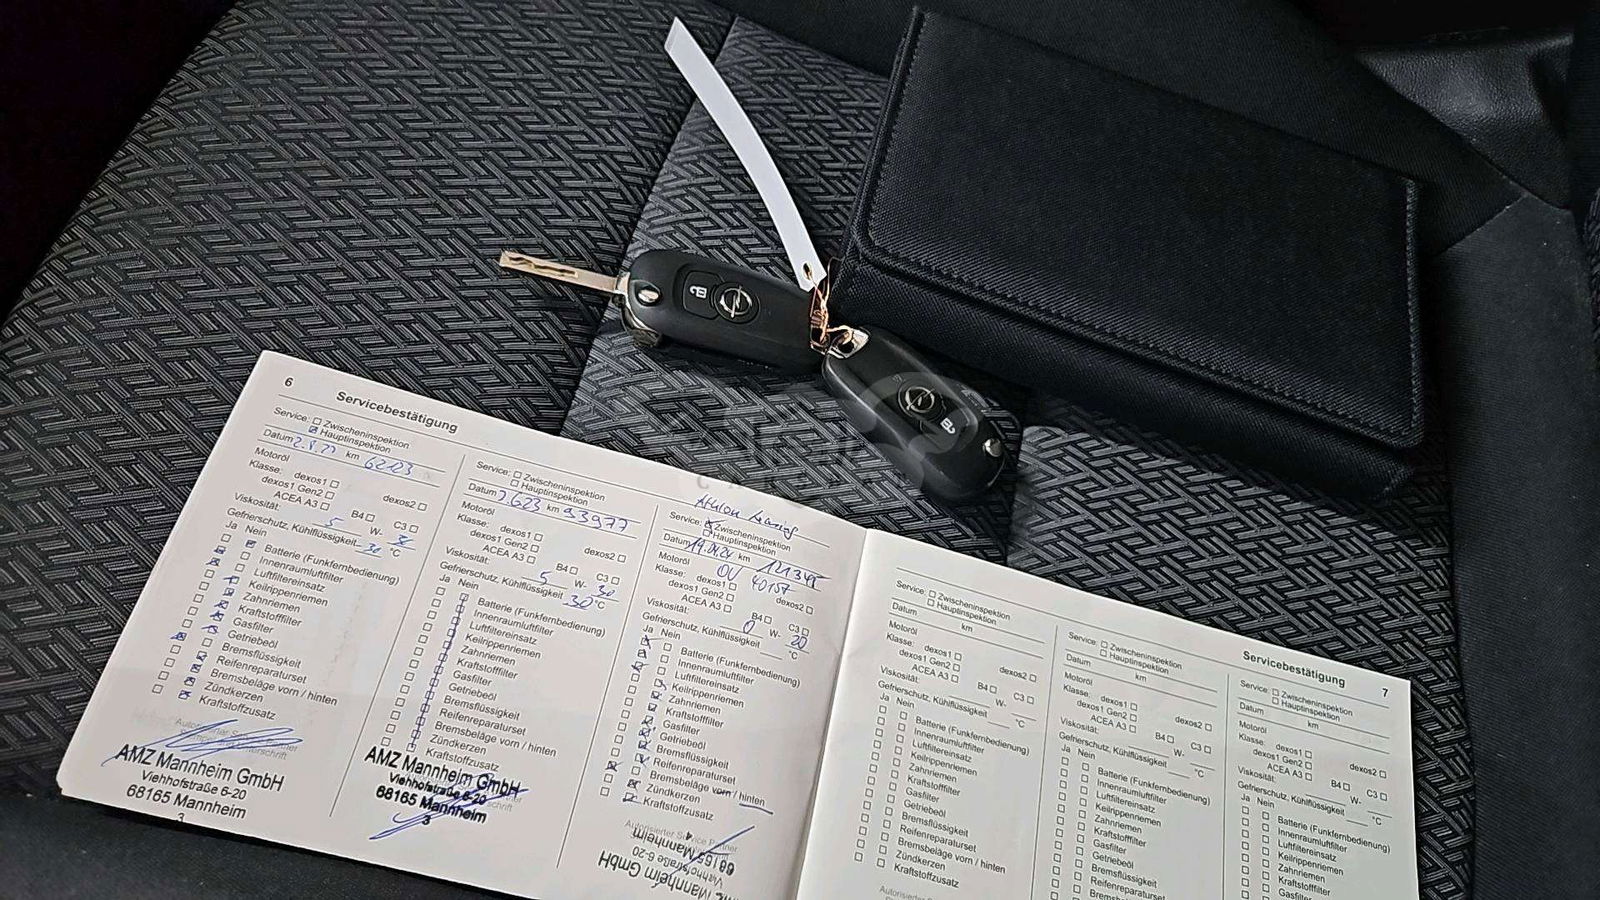 6
Servicebestätigung
Service: Zwischeninspektion
Hauptinspektion
Datum 2.8.22 km 62123
Motoröl
Klasse: dexos1
dexos1 Gen2 dexos2
ACEA A3 B4 C3
Viskosität: 5 W- 30
Gefrierschutz, Kühlflüssigkeit 30 °C
Ja Nein
Batterie (Funkfernbedienung)
Innenraumluftfilter
Luftfiltereinsatz
Keilrippenriemen
Zahnriemen
Kraftstofffilter
Gasfilter
Getriebeöl
Bremsflüssigkeit
Reifenreparaturset
Bremsbeläge vorn / hinten
Zündkerzen
Kraftstoffzusatz
AMZ Mannheim GmbH
Viehhofstraße 6-20
68165 Mannheim
3
Service: Zwischeninspektion
Hauptinspektion
Datum km 93977
Motoröl
Klasse: dexos1
dexos1 Gen2 dexos2
ACEA A3 B4 C3
Viskosität: 5 W- 30
Gefrierschutz, Kühlflüssigkeit 30 °C
Ja Nein
Batterie (Funkfernbedienung)
Innenraumluftfilter
Luftfiltereinsatz
Keilrippenriemen
Zahnriemen
Kraftstofffilter
Gasfilter
Getriebeöl
Bremsflüssigkeit
Reifenreparaturset
Bremsbeläge vorn / hinten
Zündkerzen
Kraftstoffzusatz
AMZ Mannheim GmbH
Viehhofstraße 6-20
68165 Mannheim
3
Athlon Leasing
Service: Zwischeninspektion
Hauptinspektion
Datum km
Motoröl OV 40157
Klasse: dexos1
dexos1 Gen2 dexos2
ACEA A3 B4 C3
Viskosität: 0 W- 20
Gefrierschutz, Kühlflüssigkeit °C
Ja Nein
Batterie (Funkfernbedienung)
Innenraumluftfilter
Luftfiltereinsatz
Keilrippenriemen
Zahnriemen
Kraftstofffilter
Gasfilter
Getriebeöl
Bremsflüssigkeit
Reifenreparaturset
Bremsbeläge vorn / hinten
Zündkerzen
Kraftstoffzusatz
68165 Mannheim
Viehhofstraße 6-20
Mannheim GmbH
Servicebestätigung 7
Service: Zwischeninspektion
Hauptinspektion
Datum km
Motoröl
Klasse: dexos1
dexos1 Gen2 dexos2
ACEA A3 B4 C3
Viskosität: W-
Gefrierschutz, Kühlflüssigkeit °C
Ja Nein
Batterie (Funkfernbedienung)
Innenraumluftfilter
Luftfiltereinsatz
Keilrippenriemen
Zahnriemen
Kraftstofffilter
Gasfilter
Getriebeöl
Bremsflüssigkeit
Reifenreparaturset
Bremsbeläge vorn / hinten
Zündkerzen
Kraftstoffzusatz
Service: Zwischeninspektion
Hauptinspektion
Datum km
Motoröl
Klasse: dexos1
dexos1 Gen2 dexos2
ACEA A3 B4 C3
Viskosität: W-
Gefrierschutz, Kühlflüssigkeit °C
Ja Nein
Batterie (Funkfernbedienung)
Innenraumluftfilter
Luftfiltereinsatz
Keilrippenriemen
Zahnriemen
Kraftstofffilter
Gasfilter
Getriebeöl
Bremsflüssigkeit
Reifenreparaturset
Service: Zwischeninspektion
Hauptinspektion
Datum km
Motoröl
Klasse: dexos1
dexos1 Gen2 dexos2
ACEA A3 B4 C3
Viskosität: W-
Gefrierschutz, Kühlflüssigkeit °C
Ja Nein
Batterie (Funkfernbedienung)
Innenraumluftfilter
Luftfiltereinsatz
Keilrippenriemen
Zahnriemen
Kraftstofffilter
Gasfilter